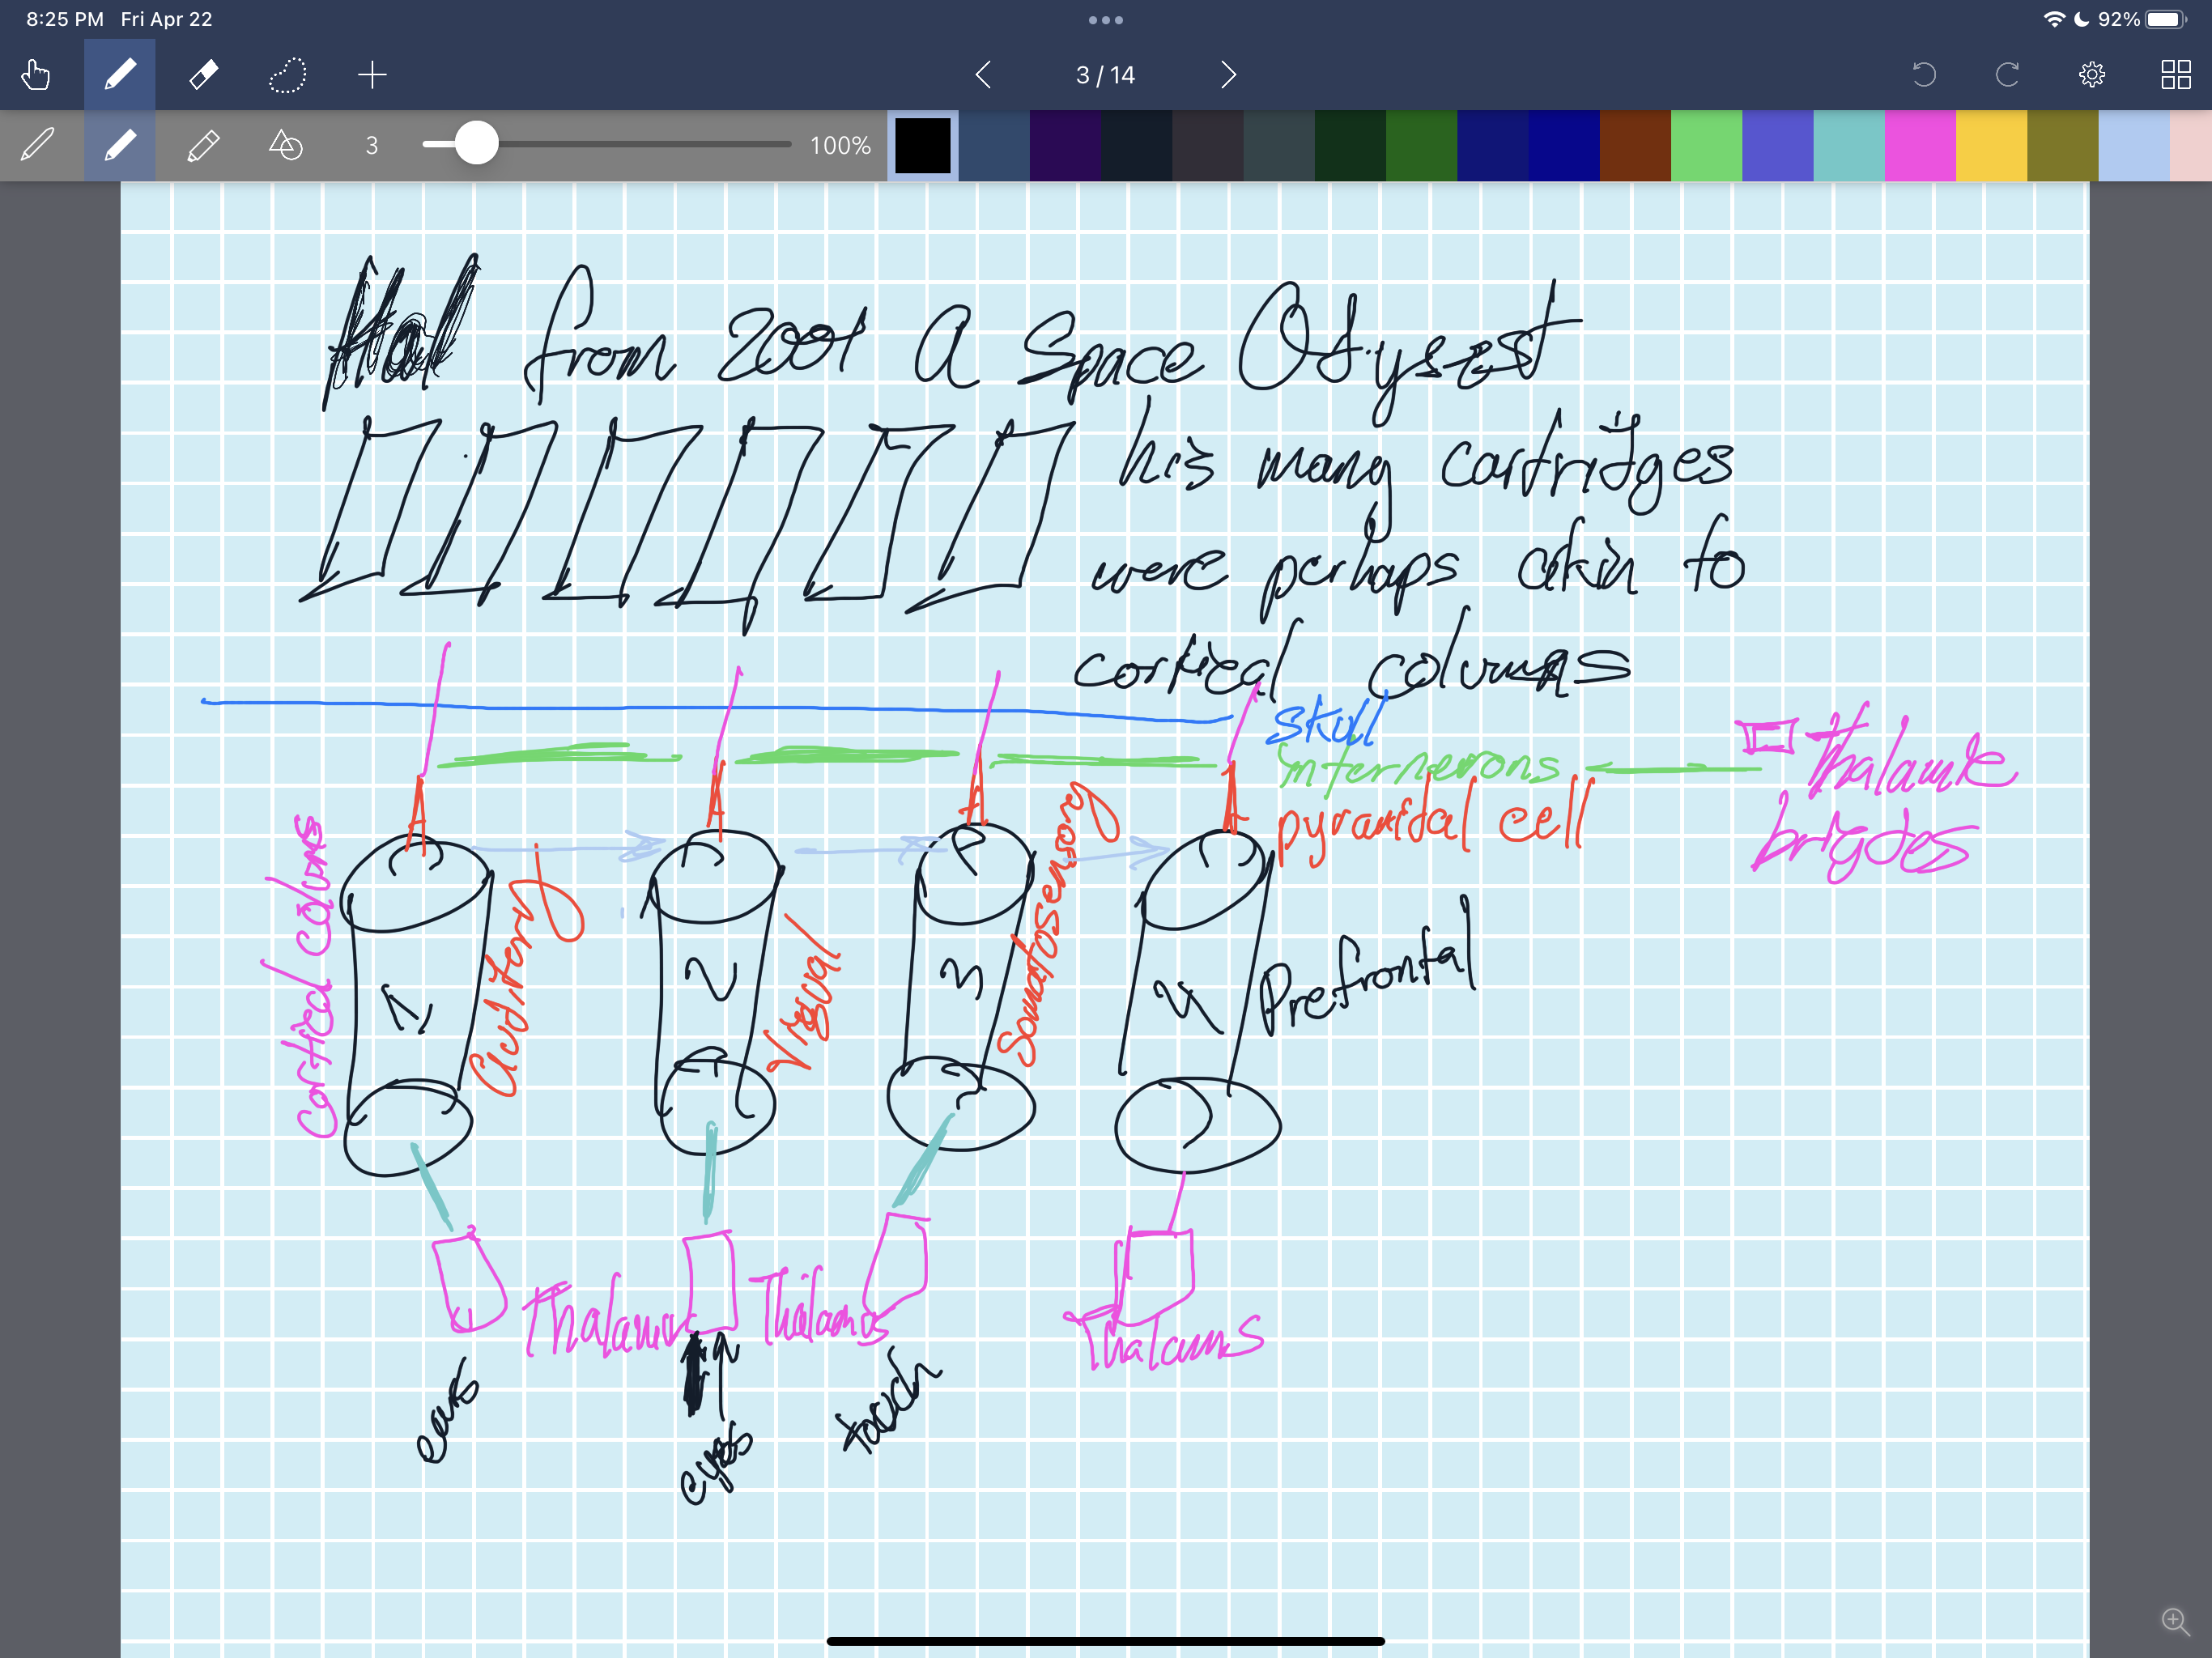 8:25 PM Fri Apr 22
92%
3 / 14
3
100%
Hal from 2001 A Space
his many cartridges
were perhaps akin to
cortical columns
Skull
pyramidal cell
Thalamic
cortical columns
Auditory
Visual
Somatosensory
Prefrontal
1
2
3
4
Thalamus
Thalamus
Thalamus
ears
eyes
touch